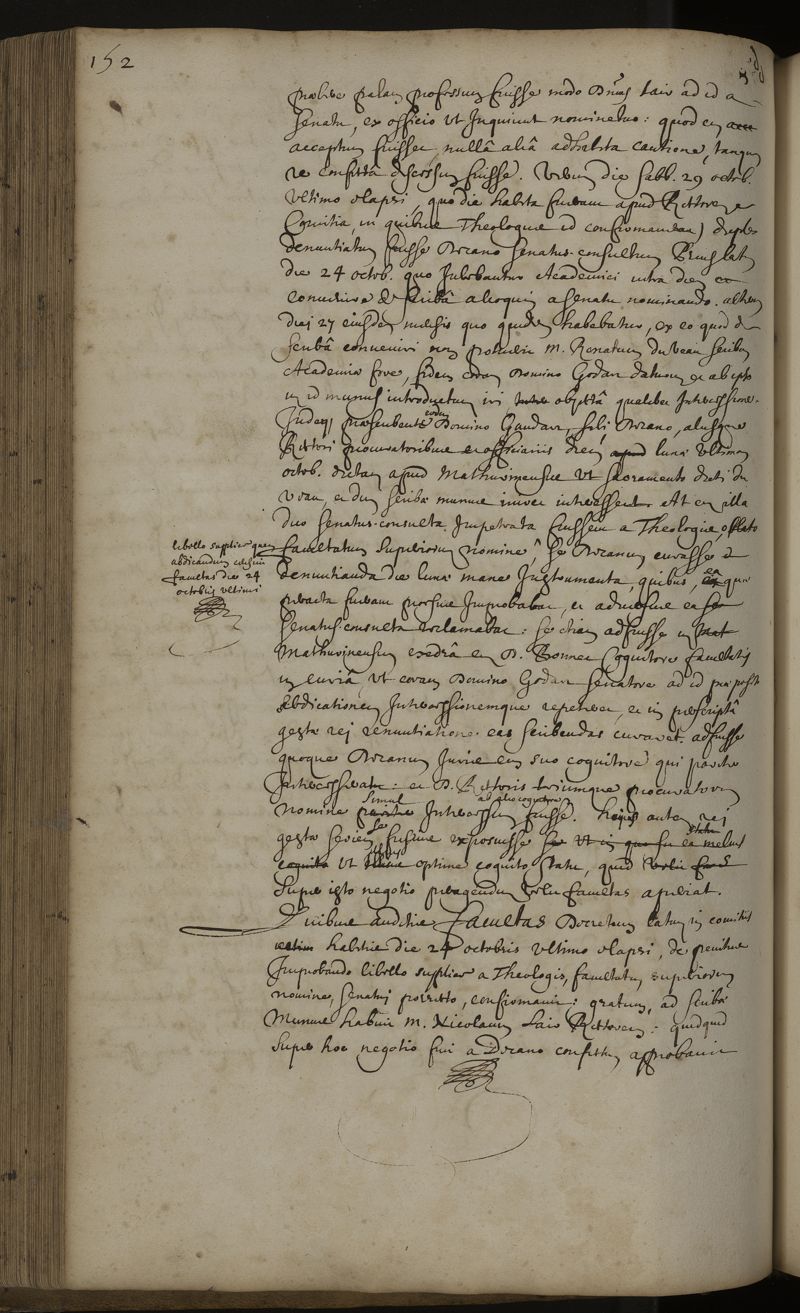 152
palam professum fuisse modo Dnus Lair ad id a
senatu, ex officio ut Inquiunt nominetur: quod cum
acceptum fuisset, nullâ aliâ adhibita cautione, tanquam
re confectâ discessum fuisse. Verum die sabb. 29 octob.
ultimo elapsi, quo die habita fuerant apud Rectorem
Comitia, in quibus Theologus id confirmaverat, duplex
denuntiatum fuisse Decano senatus-consultum Primum latum
die 24 octob. quo Jubebantur Academici intra diem
convenire de scribâ alioquin a senatu nominando. alterum
diei 27 eiusdem mensis quo quidem habebatur, ex eo quod de
scribâ convenire non potuerint M. Renatum Duveau scribam
Academiæ fore, fidem eodem Domino Godart daturum et ab ipso
in id munus introductum iri obiectâ qualibet Intercessione.
Judex, præsente eodem Domino Gaudart, sibi Decano, aliisque
Rectori procuratoribus et officiariis diem lunæ ultimam
octob. dictam apud Mathurinenses ut sacramento dicti du
Veau, et dum scribæ munus iniret interessent. At cum illa
duo senatus-consulta Impetrata fuissent a Theologis, oblato
libello supplice quem
abdicandum censuit
facultas die 24
octobris ultimi
facultatum superiorum nomine, se Decanum curasse
denuntianda die lunæ mane Instrumenta, quibus, ea quæ
peracta fuerant prorsus Improbabat, et adversus ea
senatus-consulta reclamabat: se etiam adfuisse in
Mathurinensium exedrâ cum D. Bonnet Cognitore facultatis
in curiâ, ut coram Domino Godart senatore ad id præposito
abdicationem Intercessionemque repeteret, et in præscriptâ
gestæ rei renuntiatione eas scribendas curaret. adfuisse
quoque Decanum Juris cum suo cognitore qui pariter
Intercesserat: et D. Rectoris triumque procuratorum
nomine simul ab alio cognitore Intercessum fuisse. hujus autem rei
gestæ seriem se fusius exposuisse ut
ut optime cognito statu, quid
super isto negotio peragendum velit facultas aperiat.
Quibus auditis Facultas Decretum latum in comitiis
habitis die 24 octobris ultimo elapsi, de penitus
Improbando libello supplice a Theologis, facultatum superiorum
nomine, senatui porrecto, confirmavit: gratum, ad scribæ
Munus habuit M. Nicolaum Lair Rectorem: quidquid
super hoc negotio fuit a Decano confectum approbavit